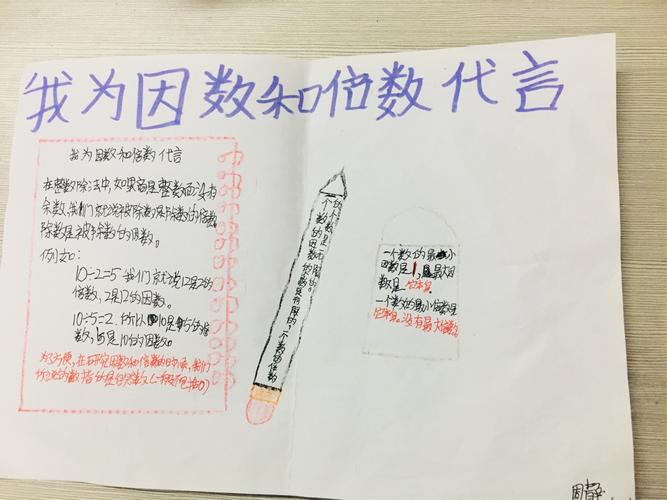 我为因数和倍数代言
我为因数和倍数代言
在整数除法中,如果商是整数而没有
余数,我们就说被除数是除数的倍数,
除数是被除数的因数。
例如:
10÷2=5 我们就说12是2的
倍数,2是12的因数。
10÷5=2,所以10是5的倍
数,5是10的因数。
为了方便,在研究因数和倍数的时候,我们
所说的数指的是自然数(一般不包括0)
一个数的因数的个数是有限的,一个数的倍数
的个数是无限的。
一个数的最小
因数是1,最大因
数是它本身。
一个数的最小倍数是
它本身。没有最大倍数
周静